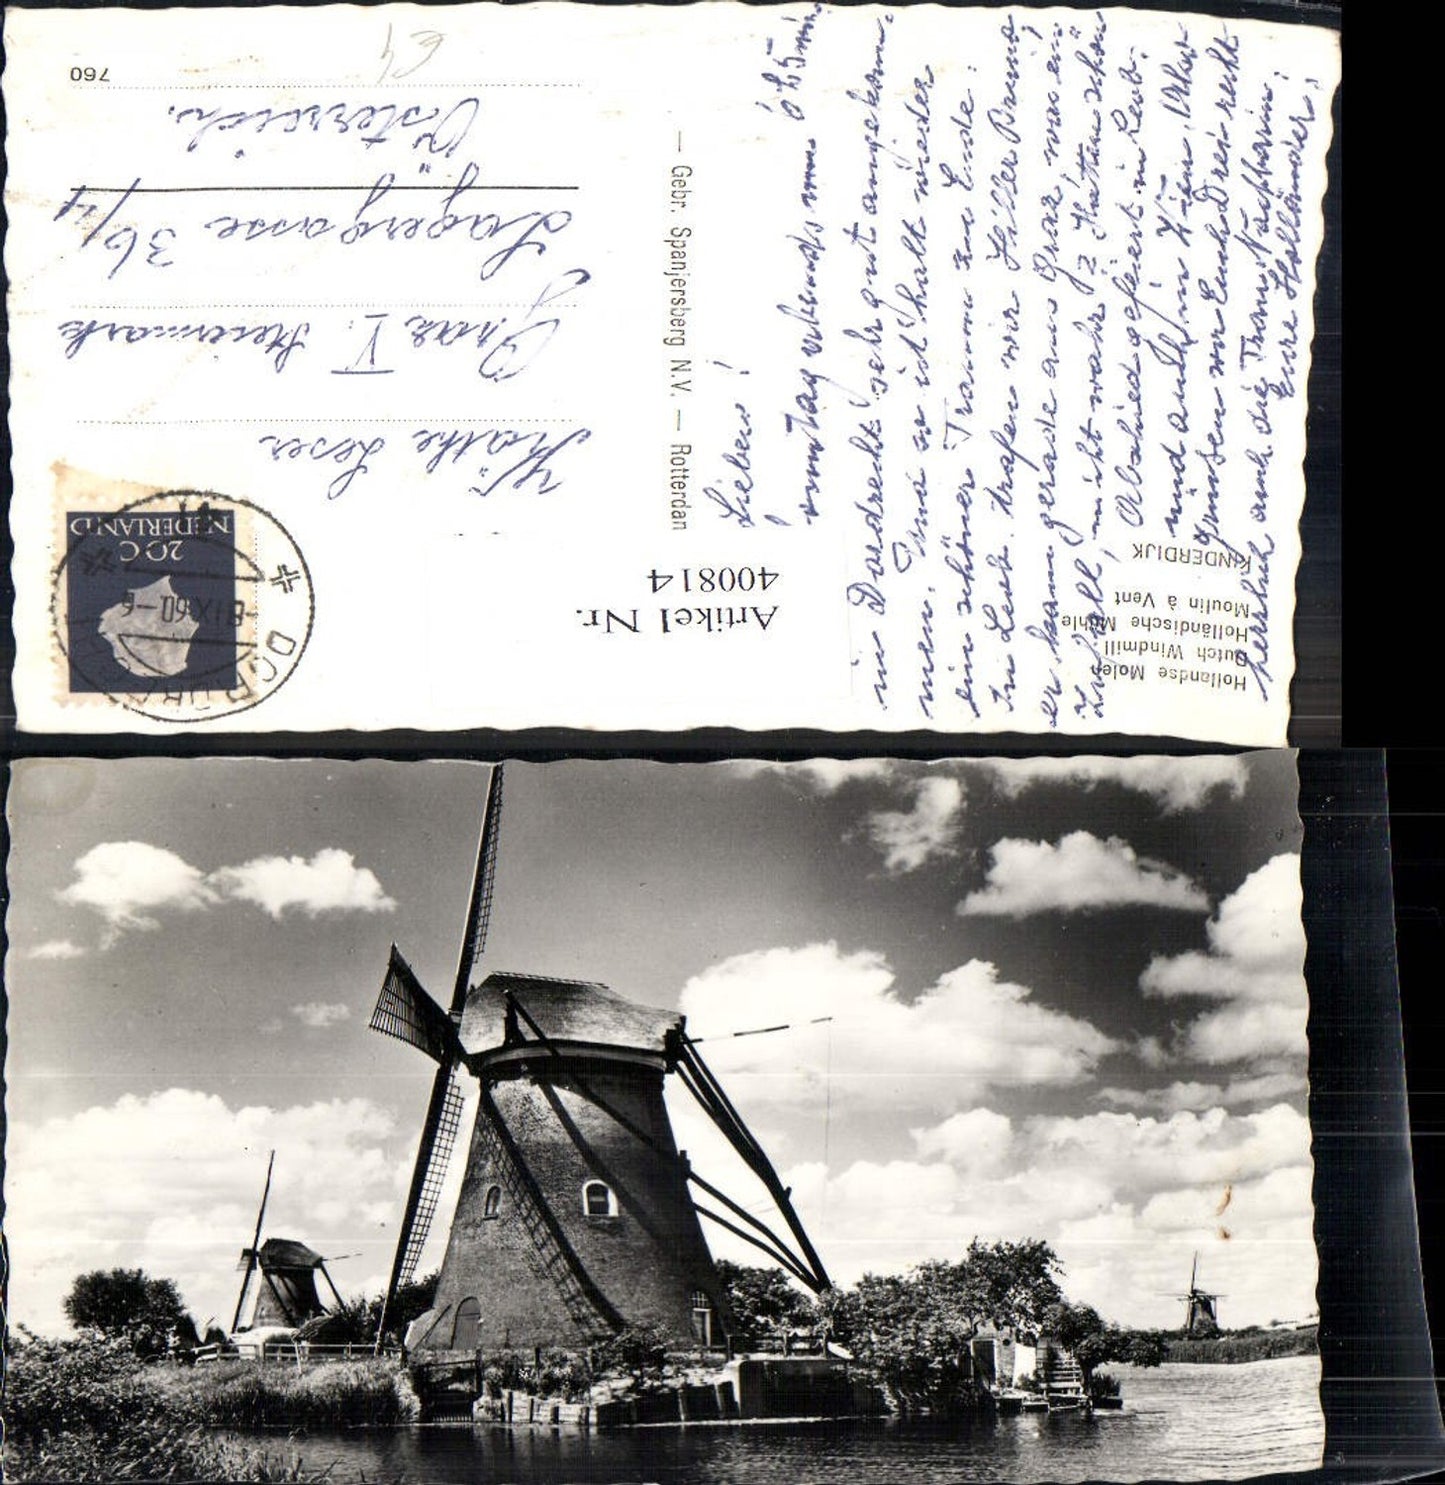 Hollandse Molen
Dutch Windmill
Holländische Mühle
Moulin à Vent
KINDERDIJK
Artikel Nr.
400814
— Gebr. Spanjersberg N.V. — Rotterdan
NEDERLAND
20 C
DORDRECHT
-8.IX.60.-6
Käthe Leser
Graz V. Steiermark
Lagergasse 36/4
Österreich.
760
€4
Lieber !
Sonntag abends um 6h 5 min.
in Dordrecht sehr gut angekom-
men. Nun so ist halt wieder
ein schöner Traum zu Ende.
In Leob. trafen wir Hiller Bruno
er kam gerade aus Graz, was ein
Zufall, nicht wahr? Hatten schön
Abschied gefeiert in Leob.
und auch in Wien. Also
Grüssen wir Euch Drei recht
herzlich auch die Frau Nachbarin.
Eure Holländer.